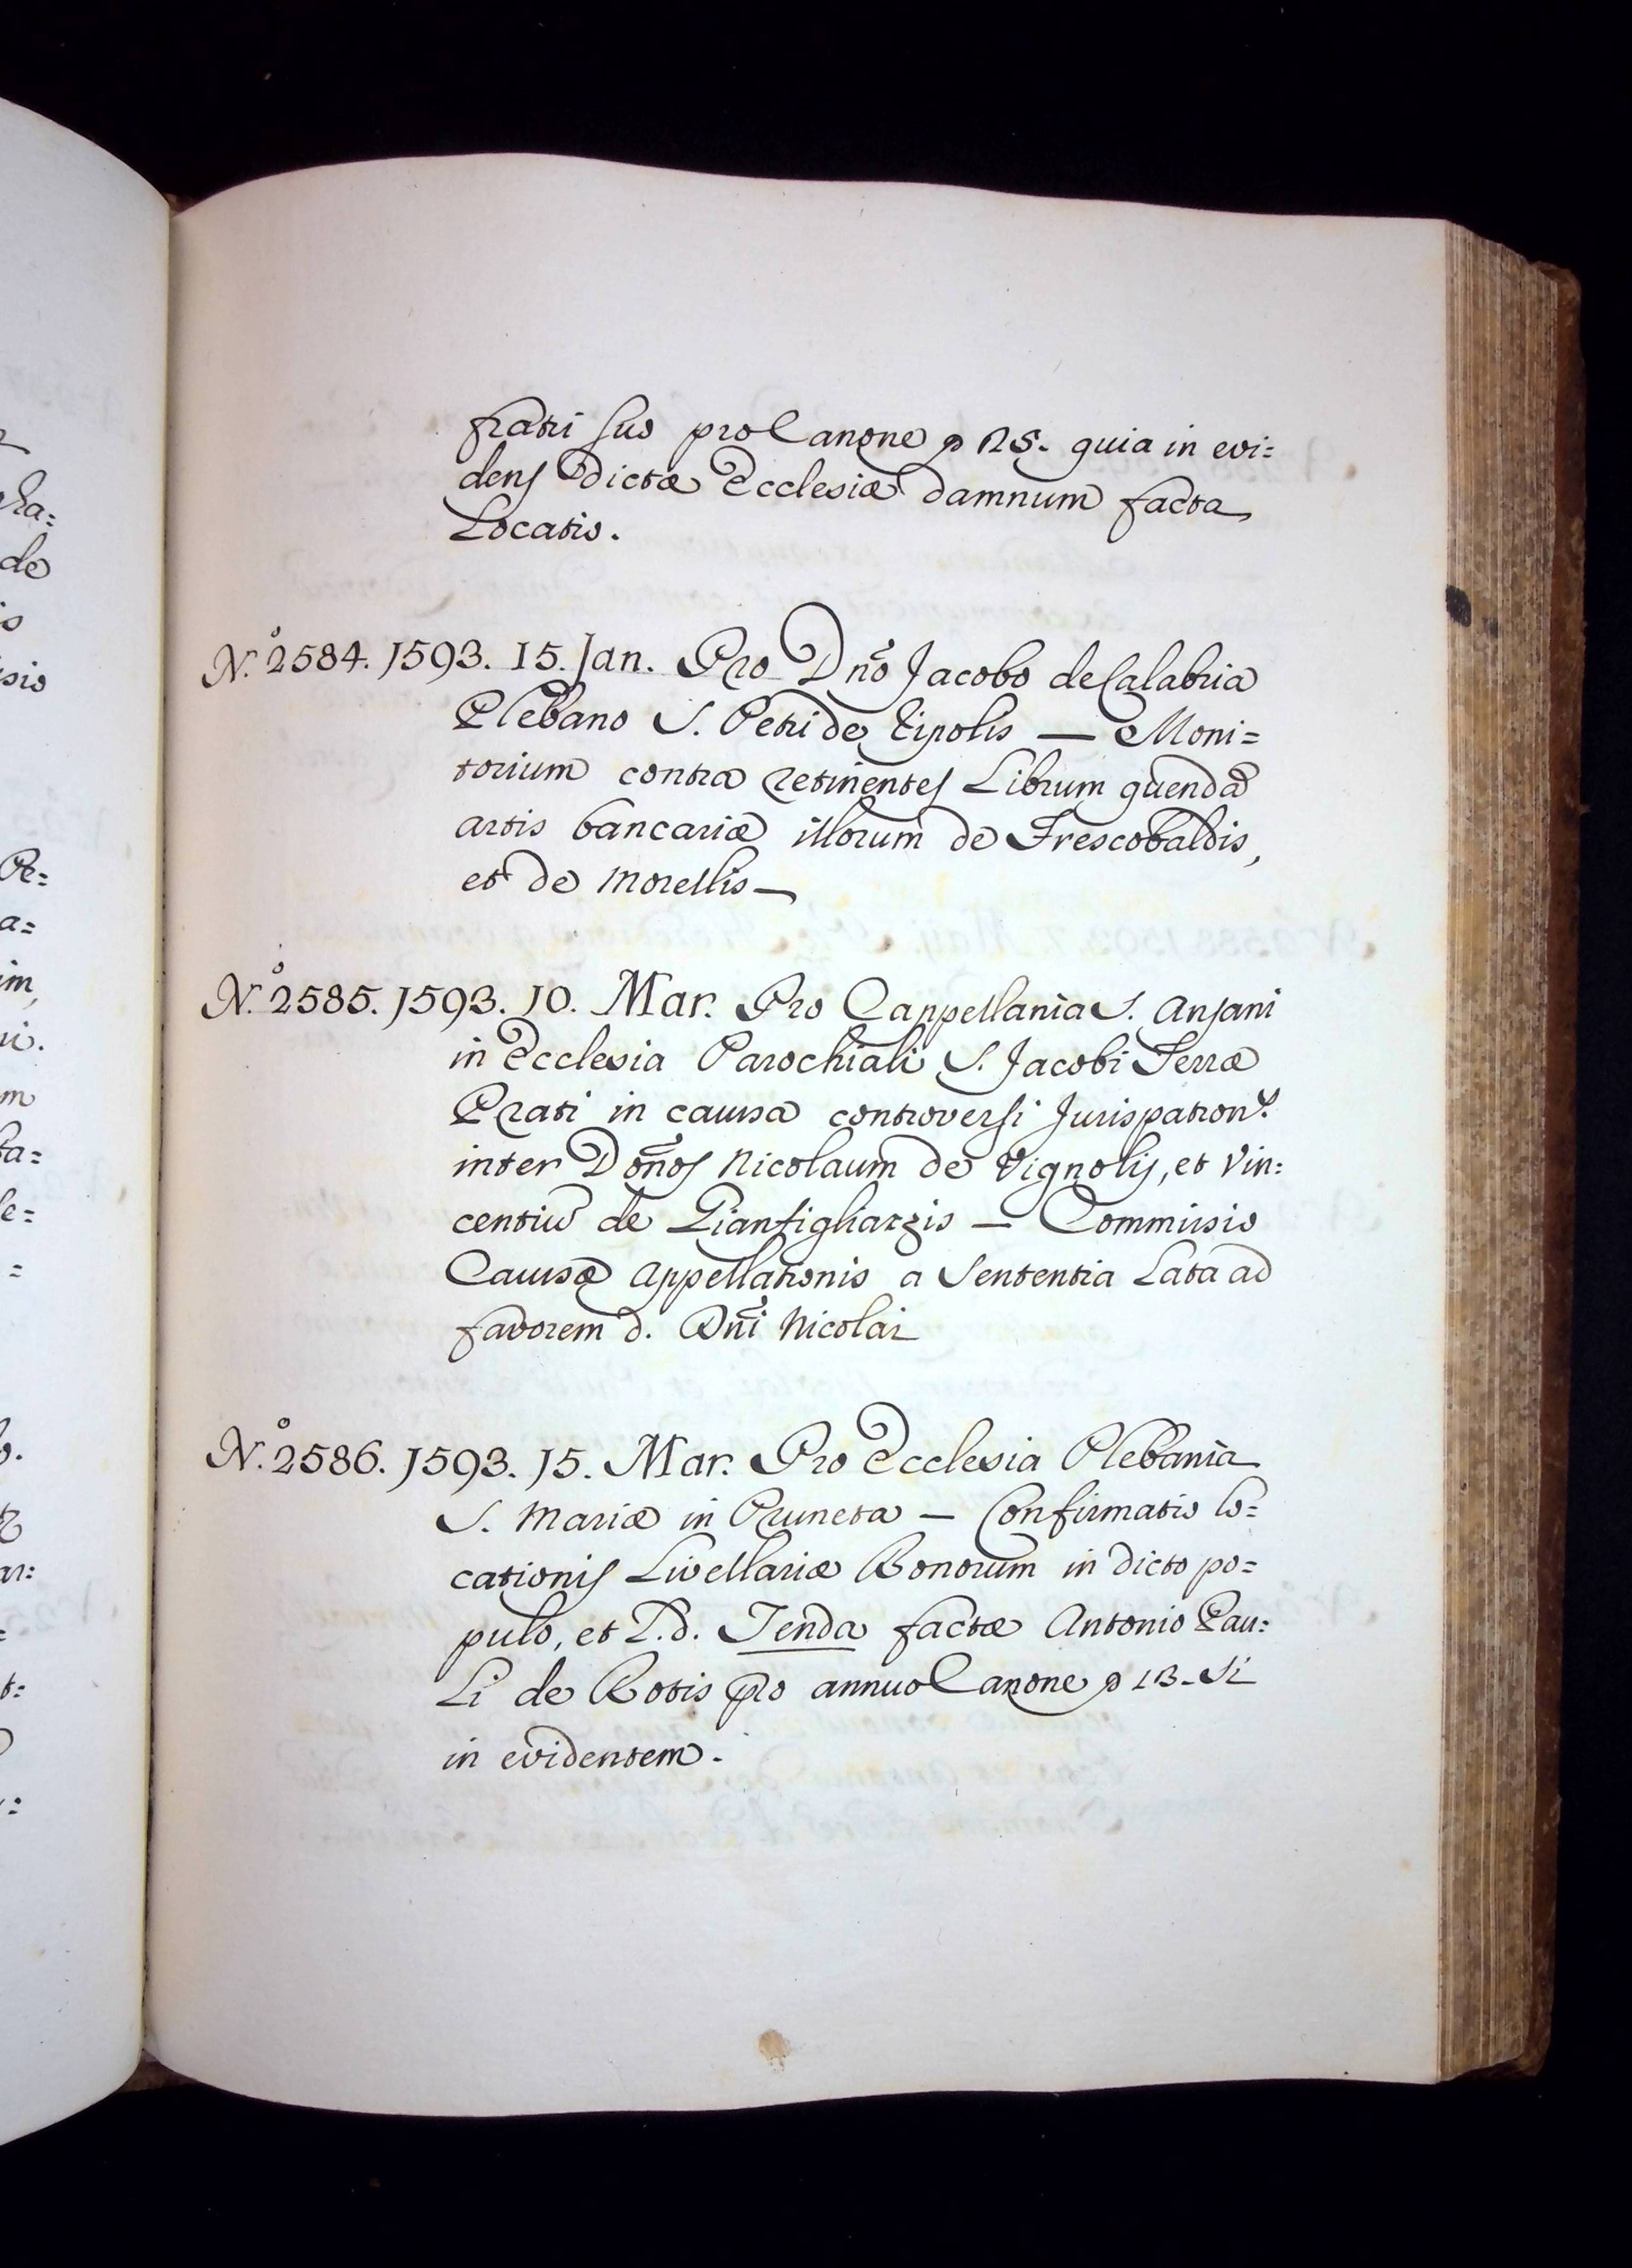 fratri suo pro Canone  25. quia in evi=
dens Dictæ Ecclesiæ damnum facta
Locatio.
N.º 2584. 1593. 15. Jan. Pro Dño Jacobo de Calabria
Plebano S. Petri de Ripolis — Moni=
torium contra retinentes Librum quendã
artis bancariæ illorum de Frescobaldis,
et de Morellis —
N.º 2585. 1593. 10. Mar. Pro Cappellania S. Ansani
in Ecclesia Parochiali S. Jacobi Terræ
Prati in causa controversi Jurispatron.s
inter Dōnos Nicolaum de Vignolis, et Vin=
centiū de Gianfigliazzis — Commissio
Causæ Appellationis a Sententia Lata ad
favorem d. Dñi Nicolai
N.º 2586. 1593. 15. Mar. Pro Ecclesia Plebania
S. Mariæ in Pruneta — Confirmatio lo=
cationis Livellariæ Bonorum in dicto po=
pulo, et L.d. Tenda factæ Antonio Pau=
Li de Rotis pro annuo Canone  13. Si
in evidentem.
Pe=
a=
de
m
=